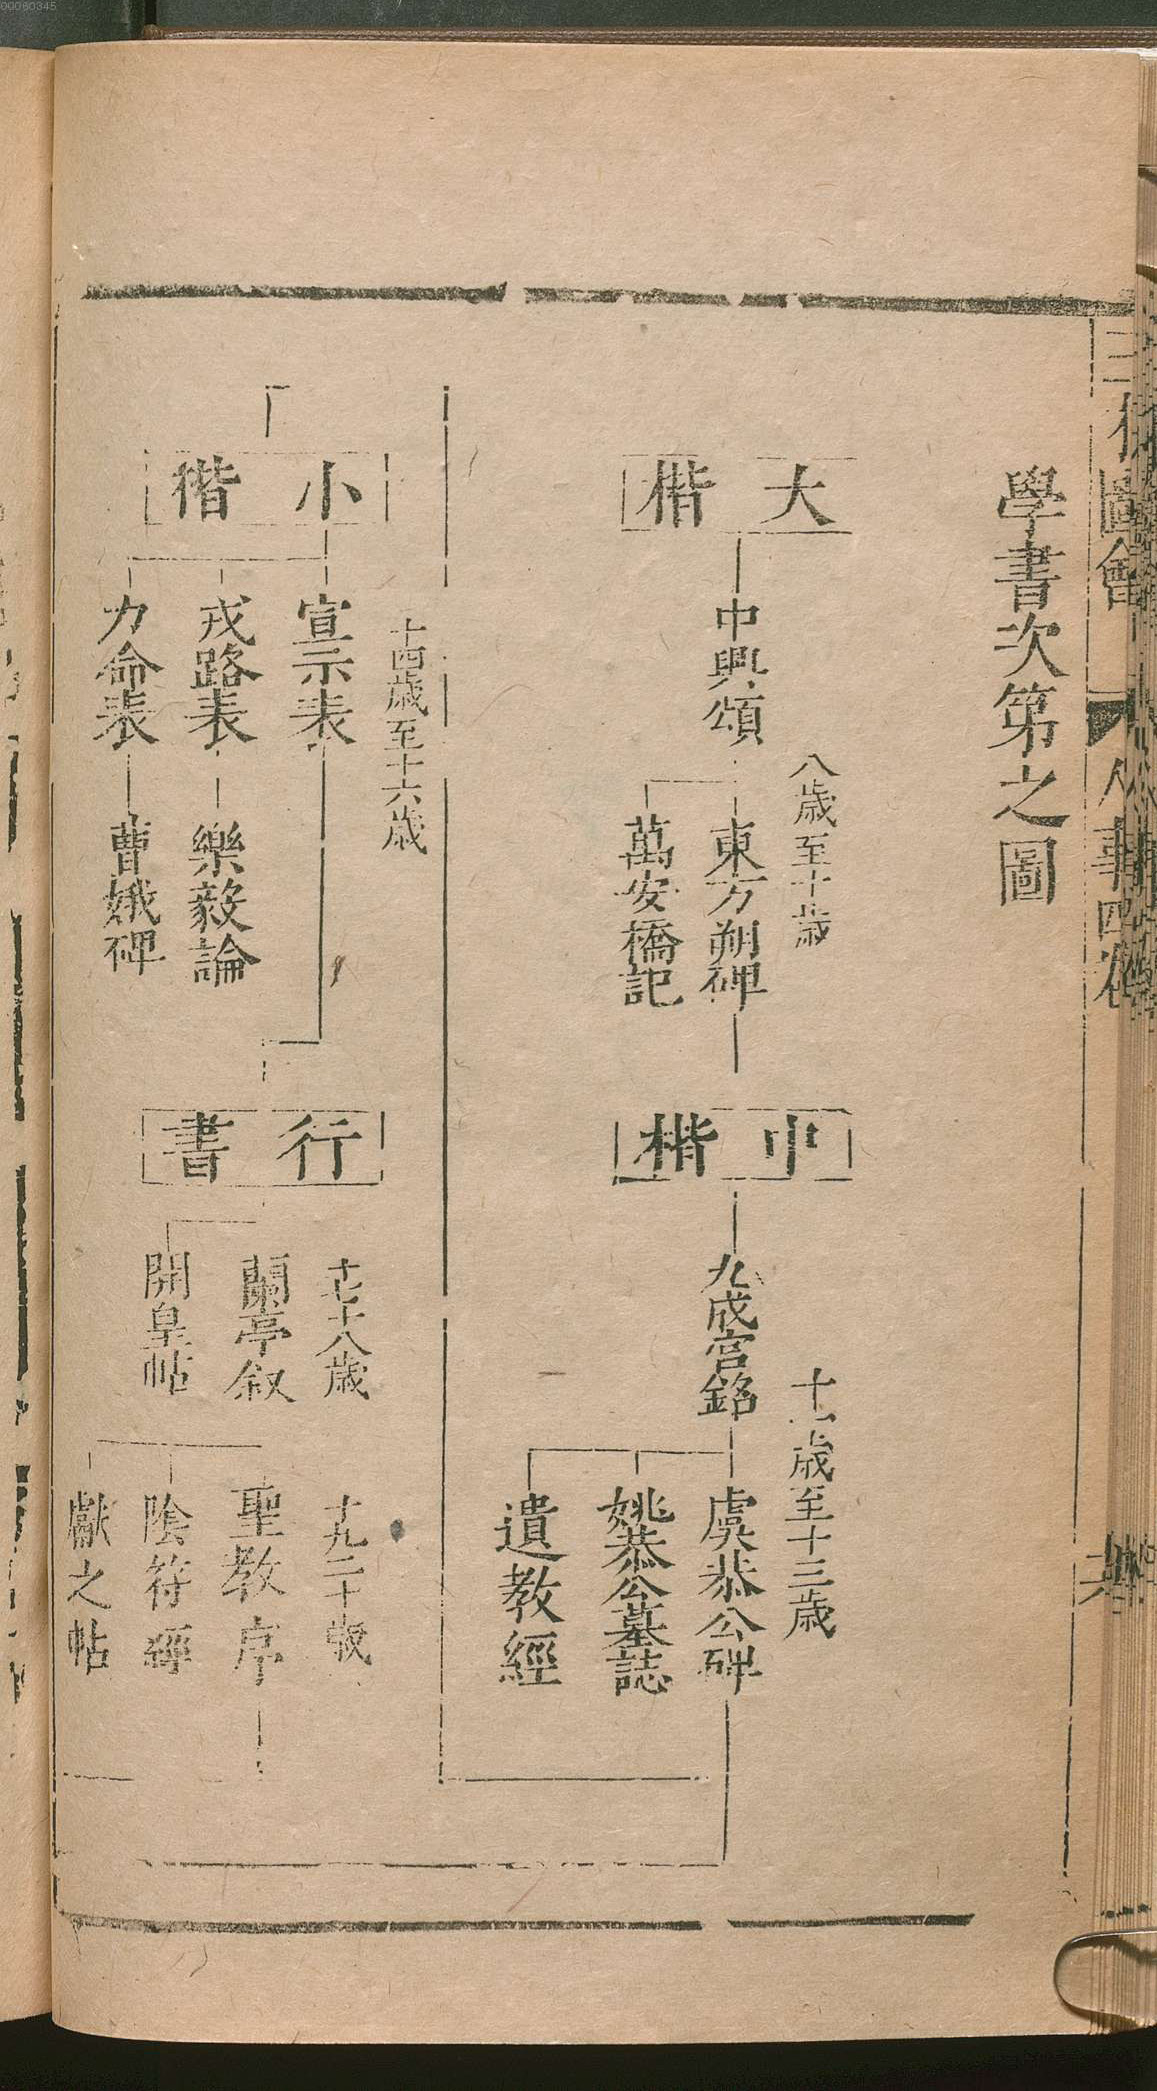 00060345
三才圖會
人事四卷
學書次第之圖
大楷
中興頌
八歲至十歲
東方朔碑
萬安橋記
中楷
九成宮銘
十一歲至十三歲
虞恭公碑
姚恭公墓誌
遺教經
小楷
十四歲至十六歲
宣示表
戎路表
力命表
樂毅論
曹娥碑
行書
十七十八歲
蘭亭叙
開皇帖
十九二十歲
聖教序
陰符經
獻之帖